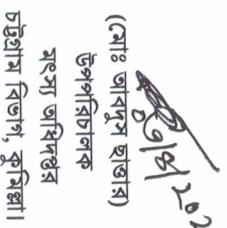 (মোঃ আবদুস ছাত্তার)
উপপরিচালক
মৎস্য অধিদপ্তর
চট্টগ্রাম বিভাগ, কুমিল্লা।